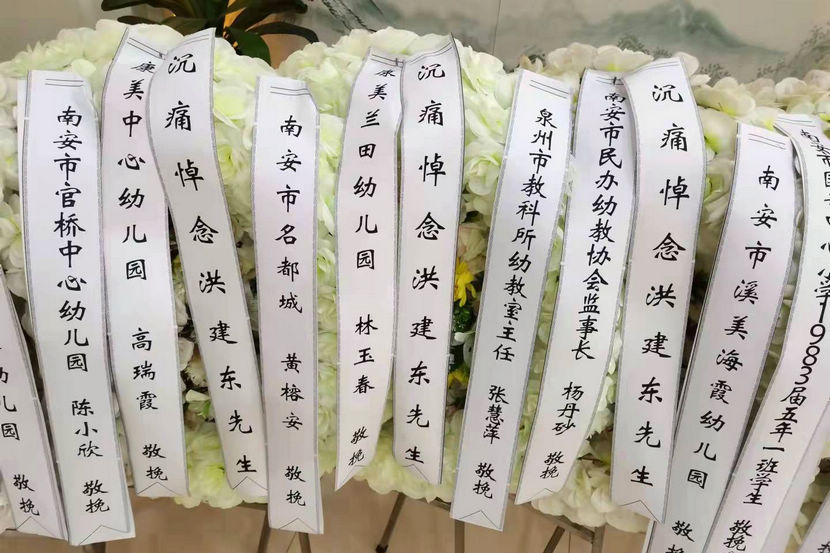 幼儿园 敬挽
南安市官桥中心幼儿园 陈小欣 敬挽
康美中心幼儿园 高瑞霞 敬挽
沉痛悼念洪建东先生
南安市名都城 黄榕安 敬挽
康美兰田幼儿园 林玉春 敬挽
沉痛悼念洪建东先生
泉州市教科所幼教室主任 张慧萍 敬挽
南安市民办幼教协会监事长 杨丹砂 敬挽
沉痛悼念洪建东先生
南安市溪美海霞幼儿园 敬
南安市国专中心小学1983届五年一班学生 敬挽